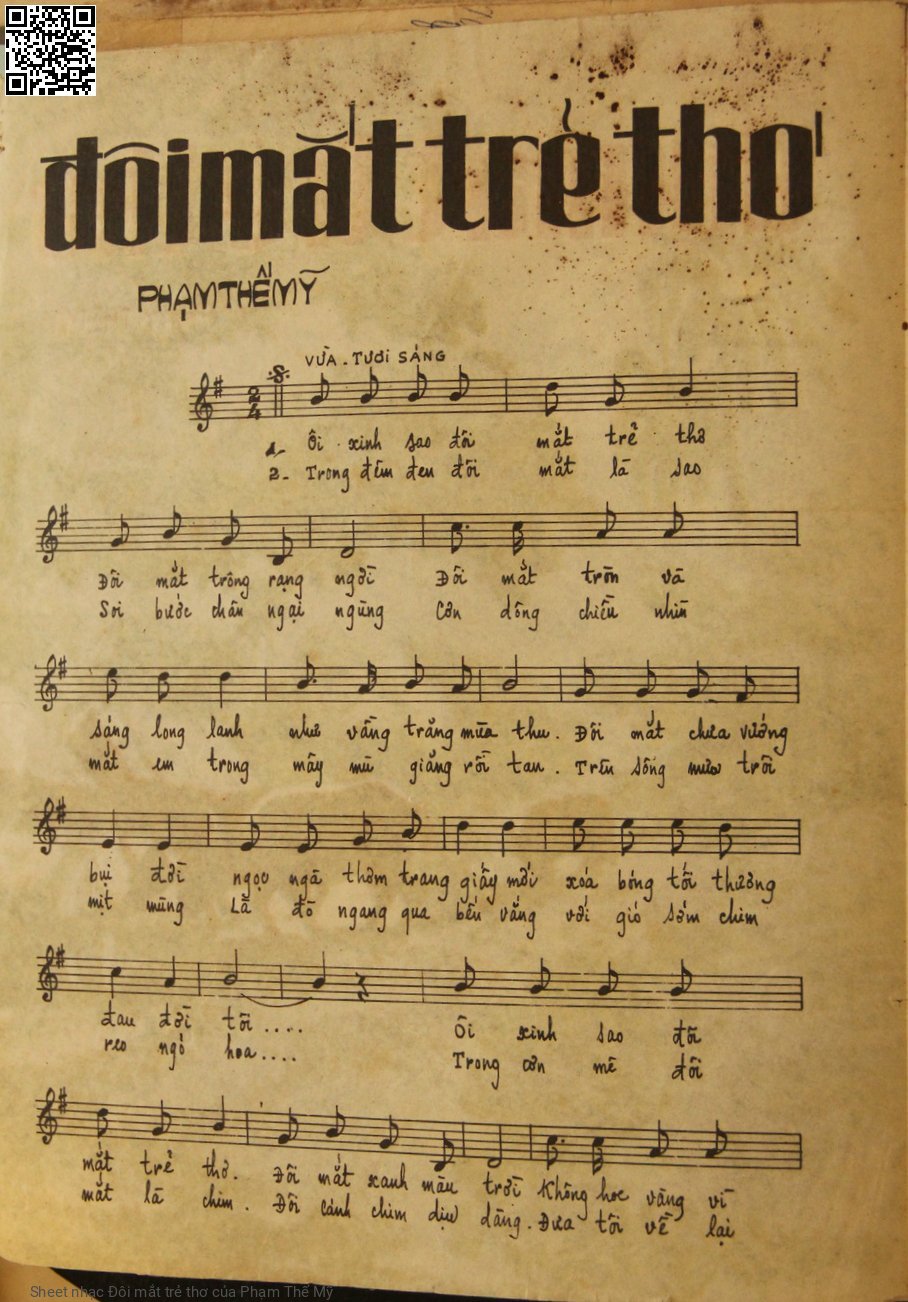 đôi mắt trẻ thơ
PHẠM THẾ MỸ
VỪA - TƯƠI SÁNG
2
4
1- Ôi xinh sao đôi mắt trẻ thơ
2- Trong đêm đen đôi mắt là sao
Đôi mắt trông rạng ngời Đôi mắt tròn và
Soi bước chân ngại ngùng Cơn dông chiều nhìn
sáng long lanh như vầng trăng mùa thu. Đôi mắt chưa vướng
mắt em trong mây mù giăng rồi tan. Trên sông mưa trôi
bụi đời ngọc ngà thơm trang giấy mới xóa bóng tối thương
mịt mùng Là đò ngang qua bến vắng với gió sớm chim
đau đời tôi .... Ôi xinh sao đôi
reo ngỏ hoa .... Trong cơn mê đôi
mắt trẻ thơ. Đôi mắt xanh màu trời Không hoe vàng vì
mắt là chim. Đôi cánh chim dịu dàng. Đưa tôi về lại
Sheet nhạc Đôi mắt trẻ thơ của Phạm Thế Mỹ